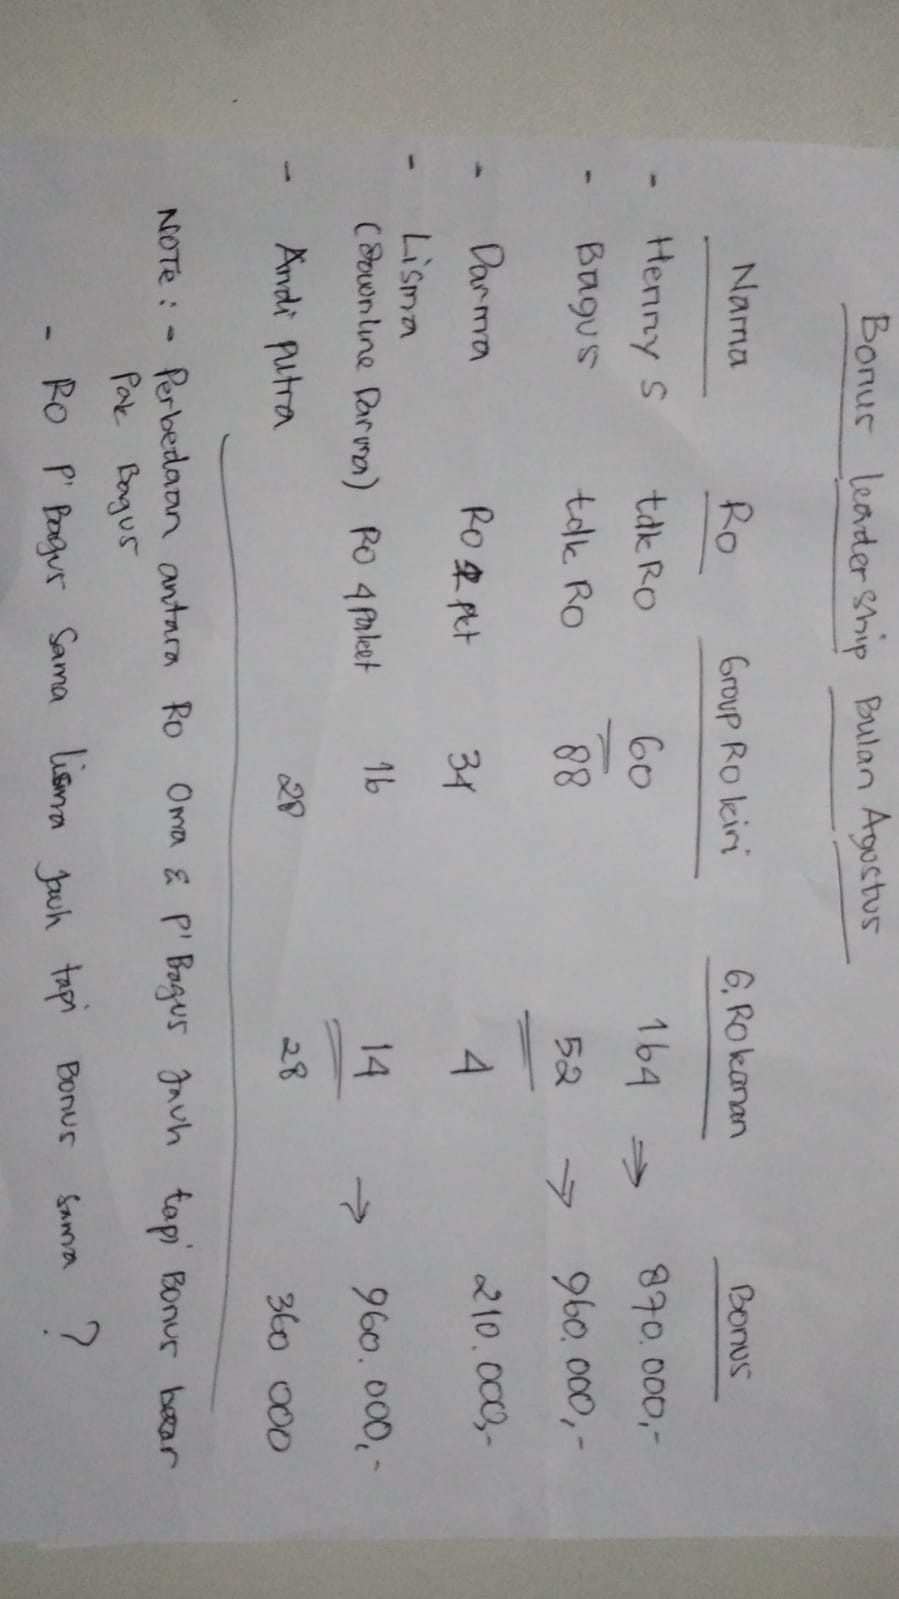 Bonus leadership Bulan Agustus
Nama Ro Group Ro kiri G. Ro kanan Bonus
- Henny S tdk RO 60 164 ⇒ 870.000,-
- Bagus tdk RO 88 52 → 960.000,-
- Darma RO pkt 34 4 210.000,-
- Lisma
(downline Darma) RO 4 paket 16 14 → 960.000,-
- Andi putra 28 28 360 000
NOTE : - Perbedaan antara Ro Oma & P' Bagus Jauh tapi Bonus besar
Pak Bagus
- RO P' Bagus sama lisma jauh tapi Bonus sama ?